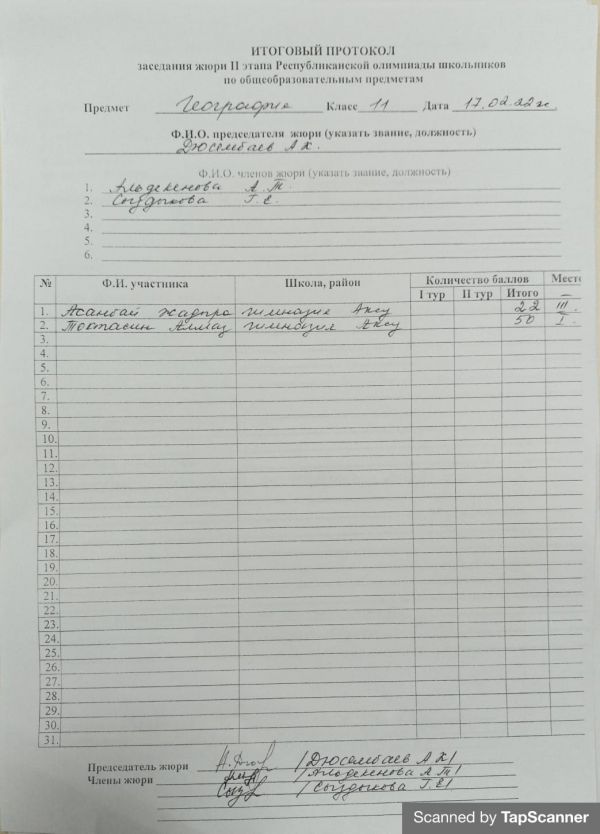 ИТОГОВЫЙ ПРОТОКОЛ
заседания жюри II этапа Республиканской олимпиады школьников
по общеобразовательным предметам
Предмет География Класс 11 Дата 17.02.22ж.
Ф.И.О. председателя жюри (указать звание, должность)
Дюсембаев А Х.
Ф.И.О. членов жюри (указать звание, должность)
1. Альдекенова А.Т.
2. Согудокова Г.Е.
3.
4.
5.
6.
№ Ф.И. участника Школа, район Количество баллов Место
I тур II тур Итого
1. Асанбай гимназия Аксу 22 III.
2. Токтасин Алмаз гимназия Аксу 50 I.
3.
4.
5.
6.
7.
8.
9.
10.
11.
12.
13.
14.
15.
16.
17.
18.
19.
20.
21.
22.
23.
24.
25.
26.
27.
28.
29.
30.
31.
Председатель жюри /Дюсембаев А Х/
Члены жюри /Альдекенова А Т/
/Согудокова Г Е/
Scanned by TapScanner